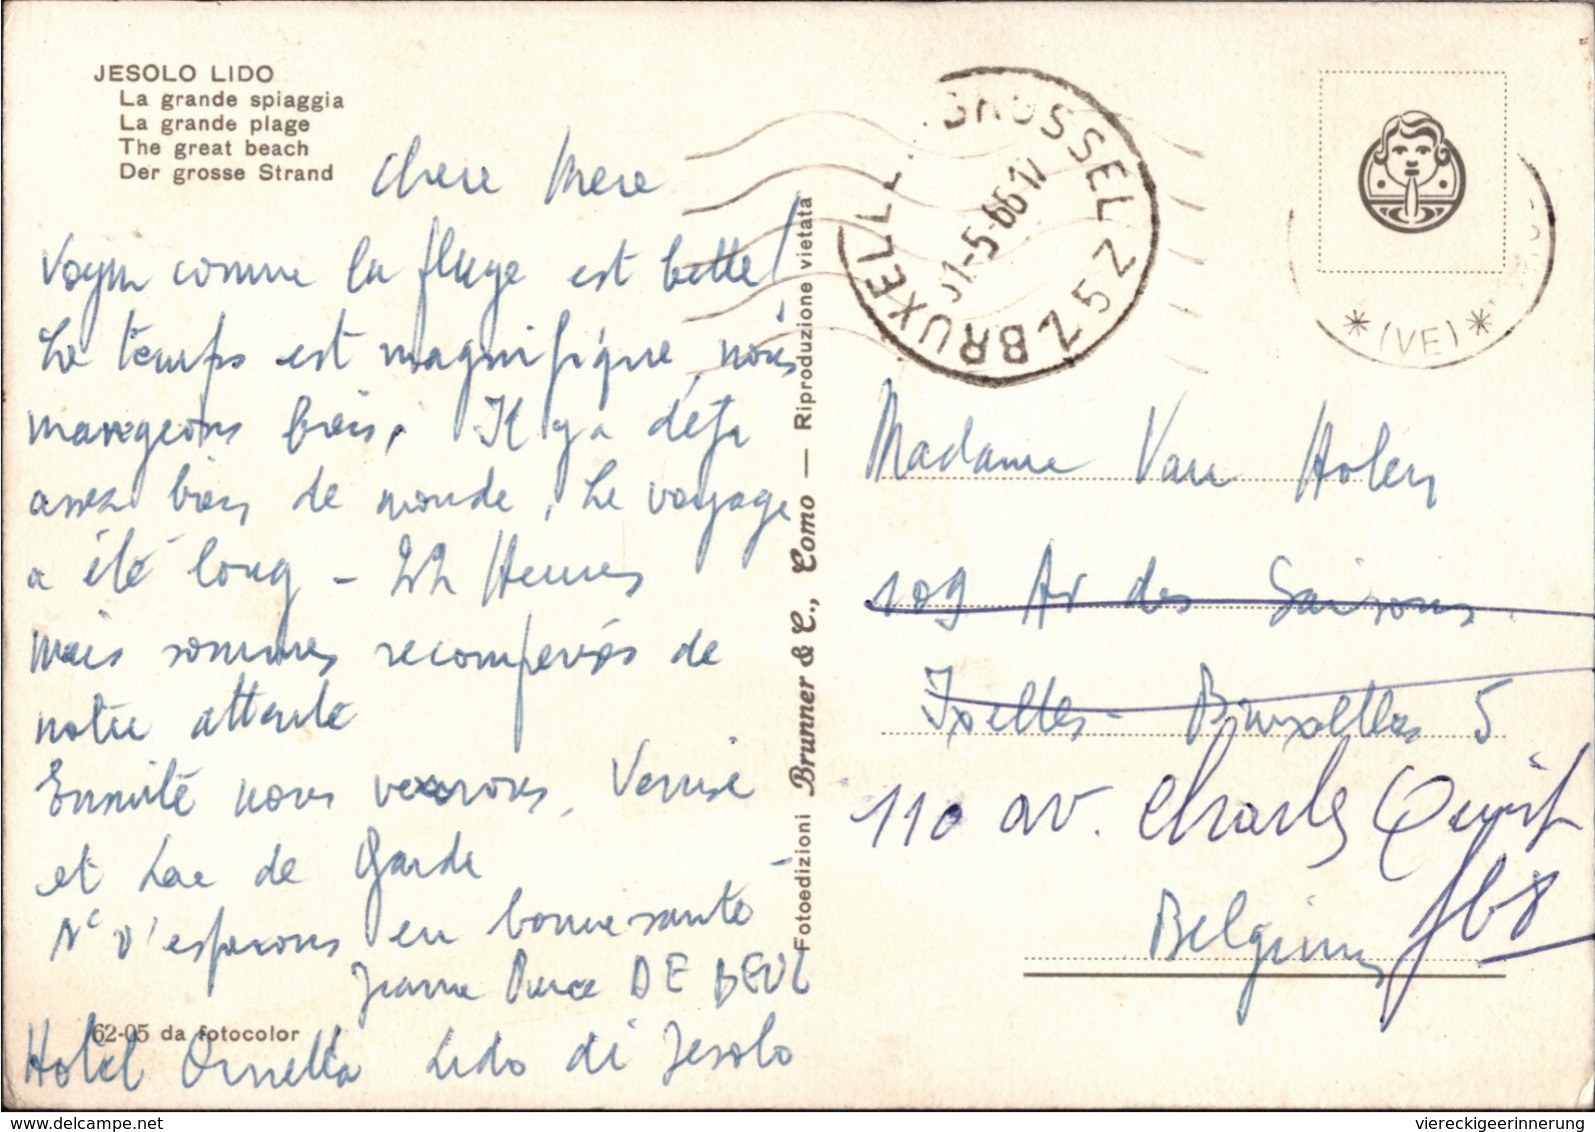 JESOLO LIDO
La grande spiaggia
La grande plage
The great beach
Der grosse Strand
Chere Mere
comme la plage est belle!
Le temps est magnifique, nous
mangeons bien. Il y a déja
assez bien de monde. Le voyage
a été long - 22 Heures
mais sommes recompensés de
notre attente
Ensuite nous verrons, Venise
et Lac de Garde
espérons en bonne santé
DE BEUL
62-05 da fotocolor
Hotel Ornella Lido di Jesolo
Fotoedizioni Brunner & C., Como — Riproduzione vietata
BRUXELL BRUSSEL
-5-66 17
(VE)
Madame Van Holen
109 Av des Saisons
Ixelles - Bruxelles 5
110 av. Charles Quint
Belgium
viereckigeerinnerung
delcampe.net